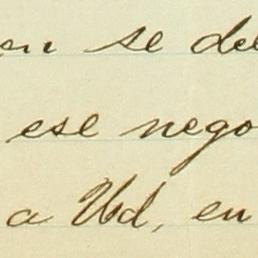 en se de
ese nego
a Vd, en